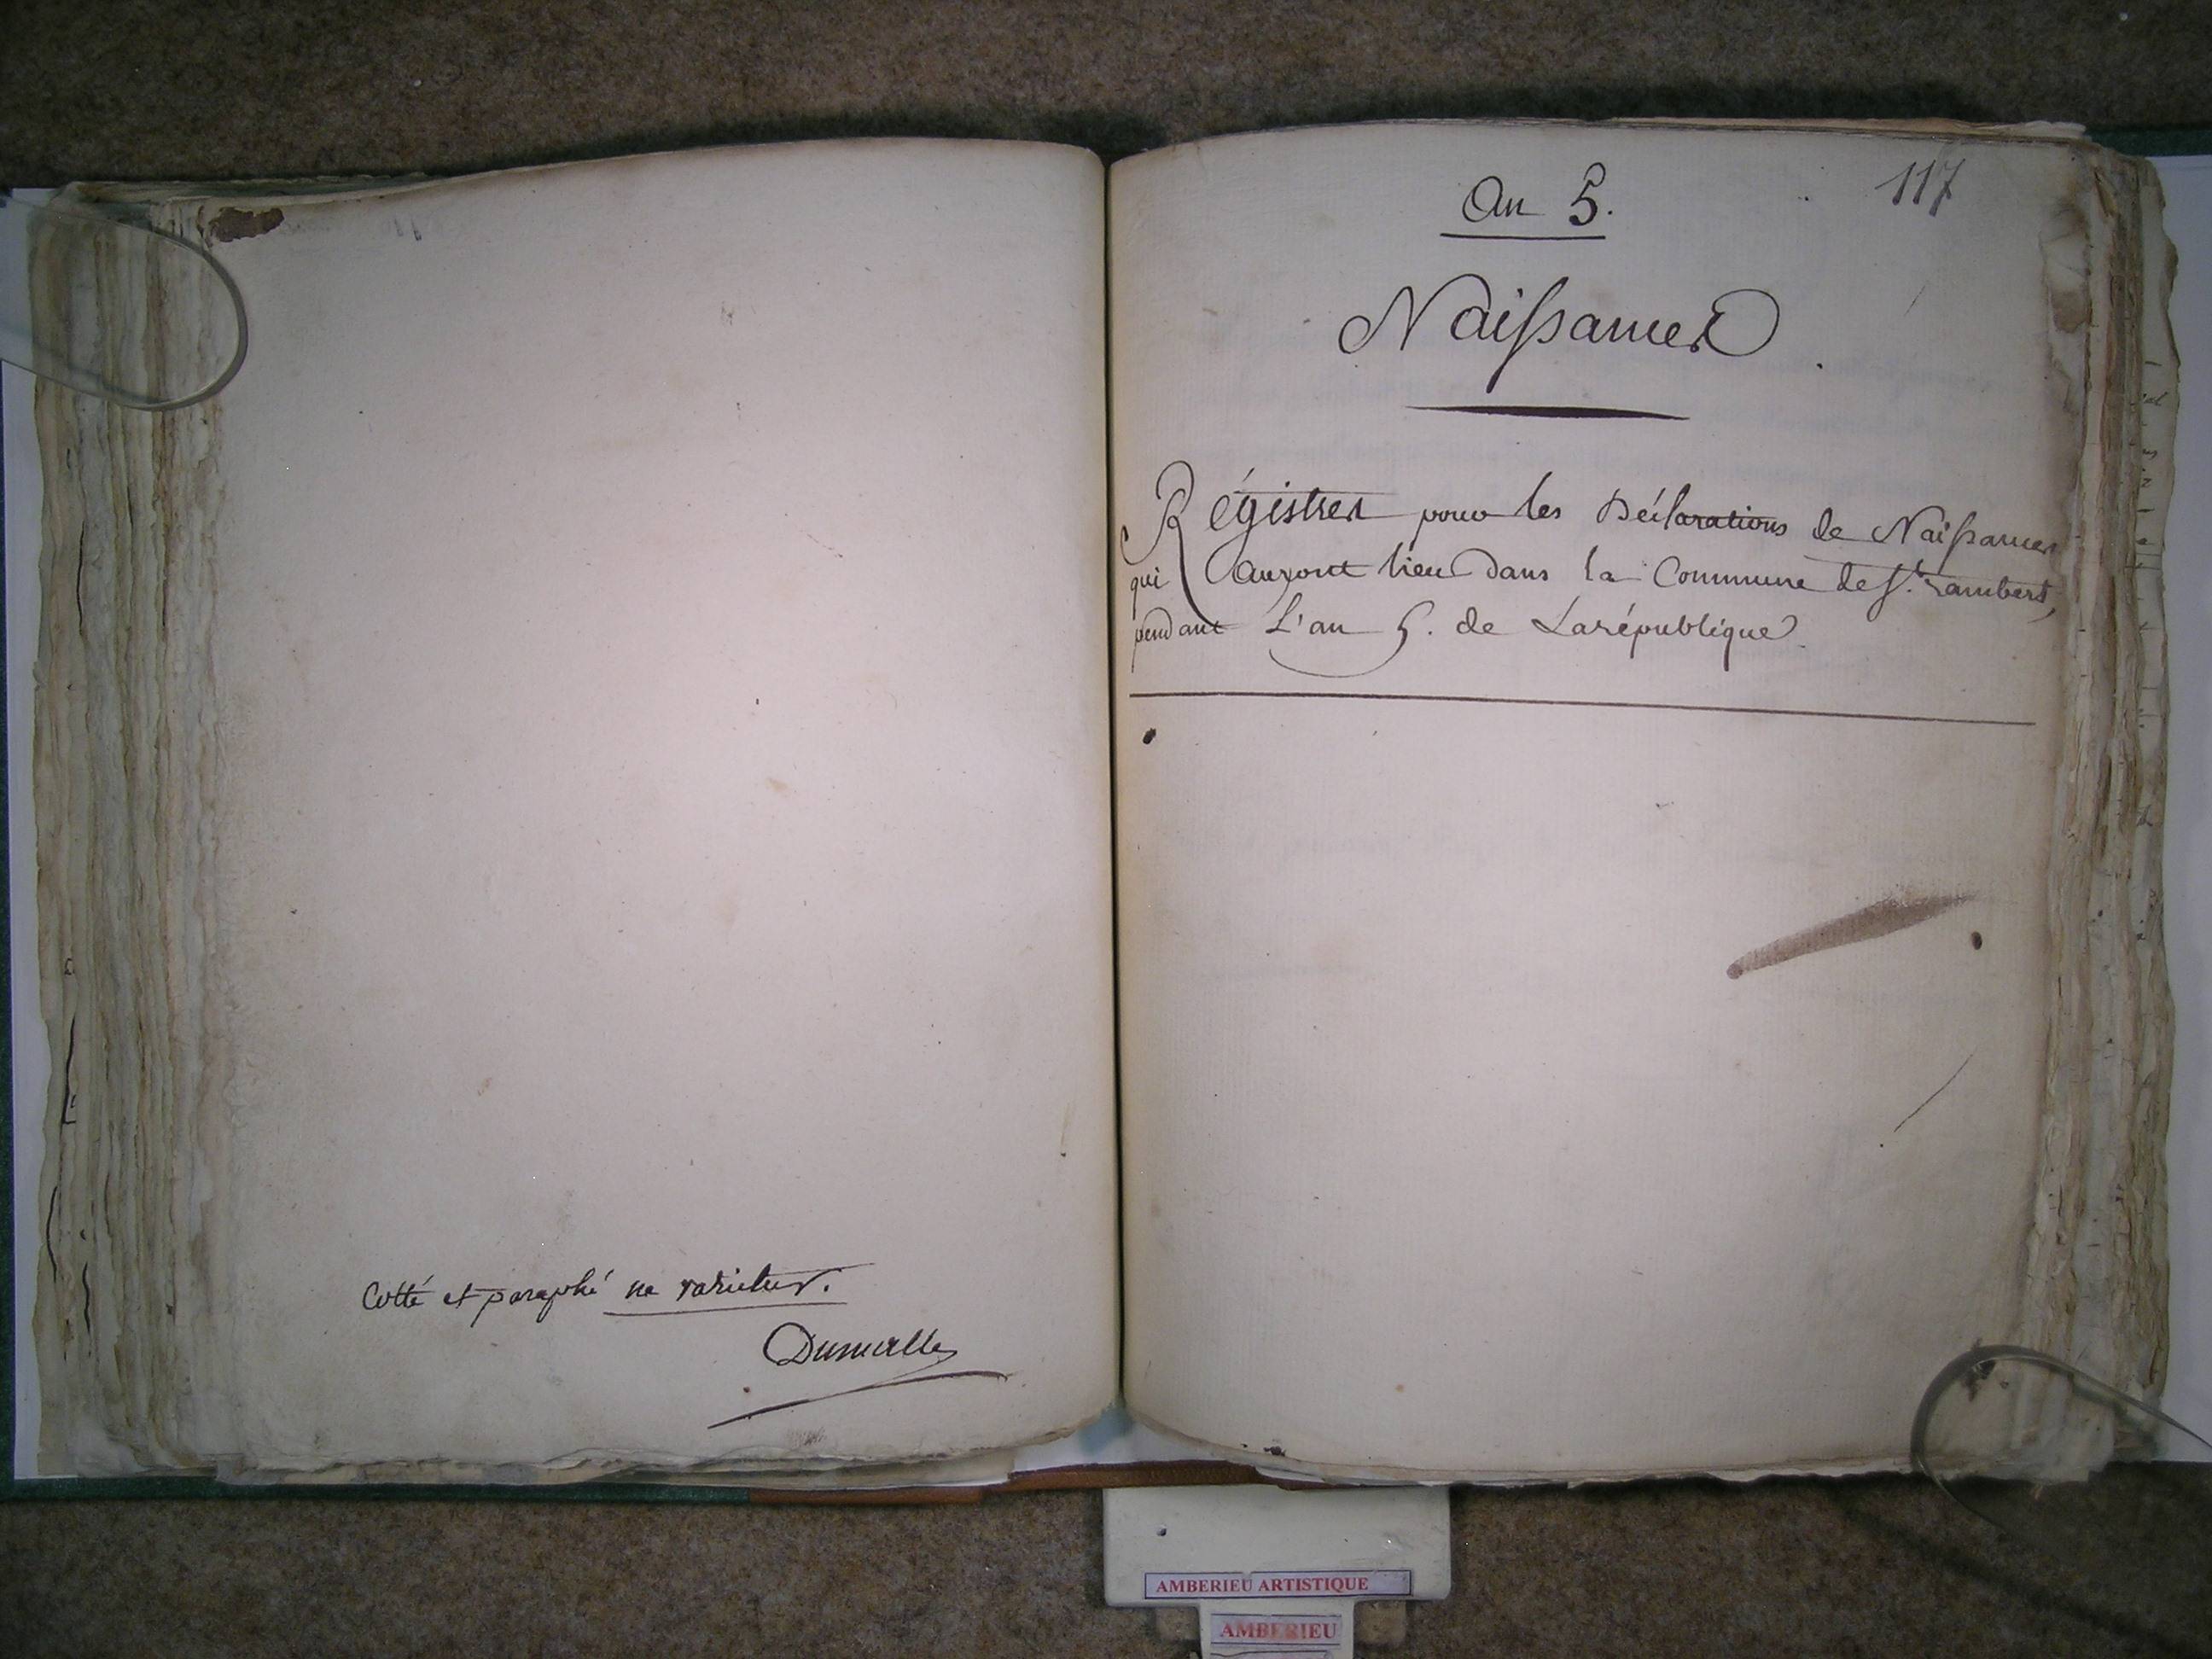 Cotté et paraphé ne varietur.
Dumelle
An 5.
117
Naissances
Régistres pour les Déclarations de Naissances
qui auront lieu dans la Commune de St. Rambert,
pendant L'an 5. de La république
AMBERIEU ARTISTIQUE
AMBERIEU